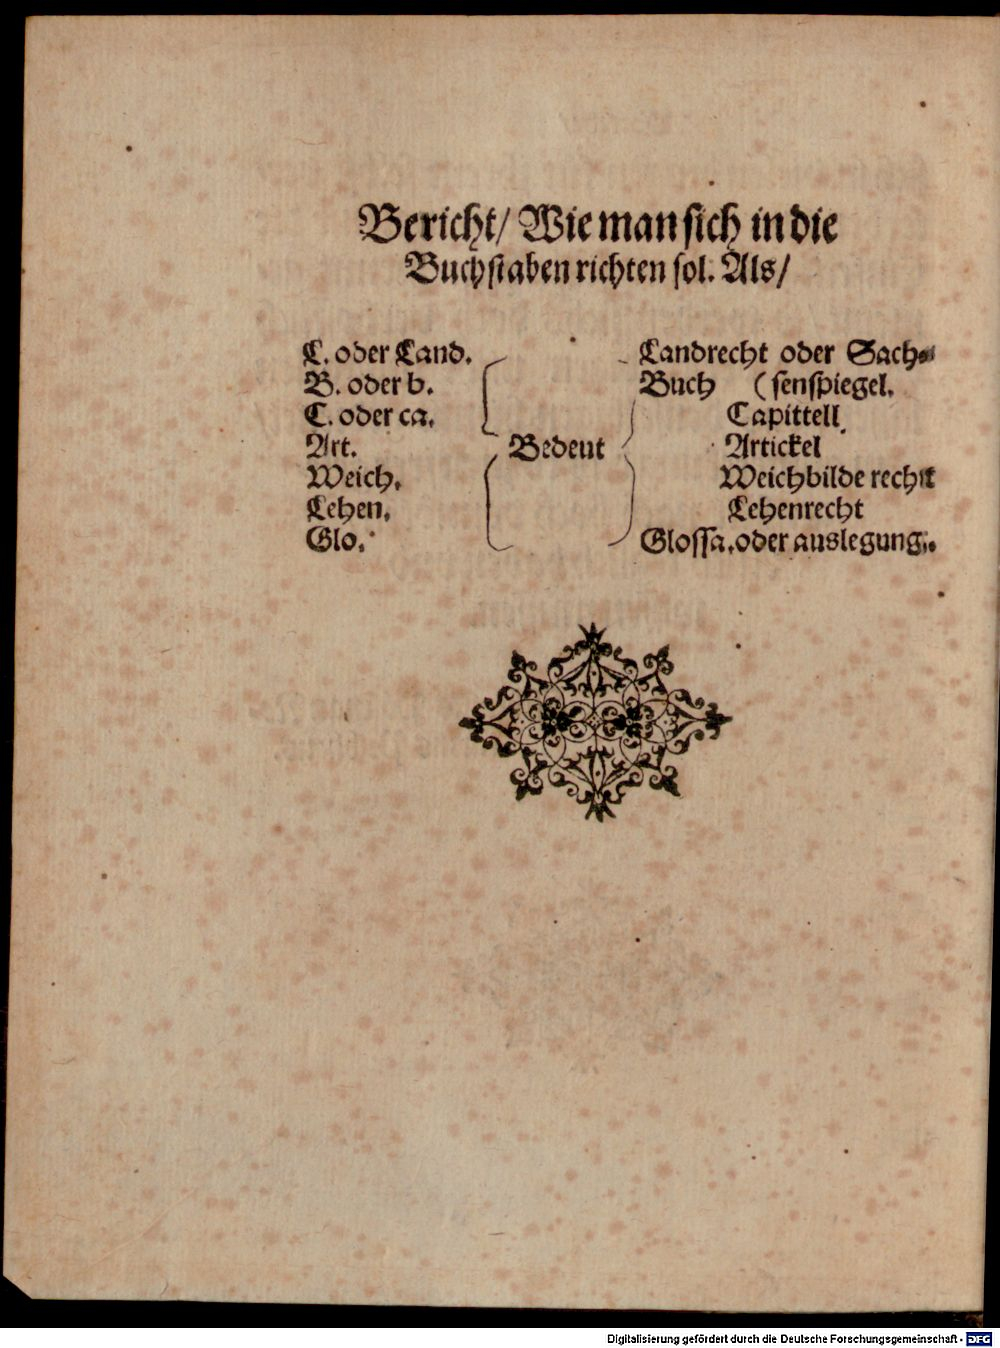 Bericht/ Wie man sich in die
Buchstaben richten sol. Als/
L. oder Land. Landrecht oder Sach-
B. oder b. Buch (senspiegel.
C. oder ca. Capittell
Art. Bedeut Artickel
Weich. Weichbilde recht
Lehen. Lehenrecht
Glo. Glossa. oder auslegung.
Digitalisierung gefördert durch die Deutsche Forschungsgemeinschaft - DFG